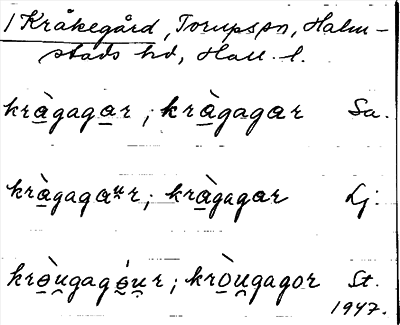 1 Kråkegård, Torups sn, Halm-
stads hd, Hall. l.
krà̱gaga̱r; krà̱gagar Sa.
krà̱gagaᵘr; krà̱gagar Lj.
krò̱u̯gagó̱u̯r; krò̱u̯gagor St.
1947.